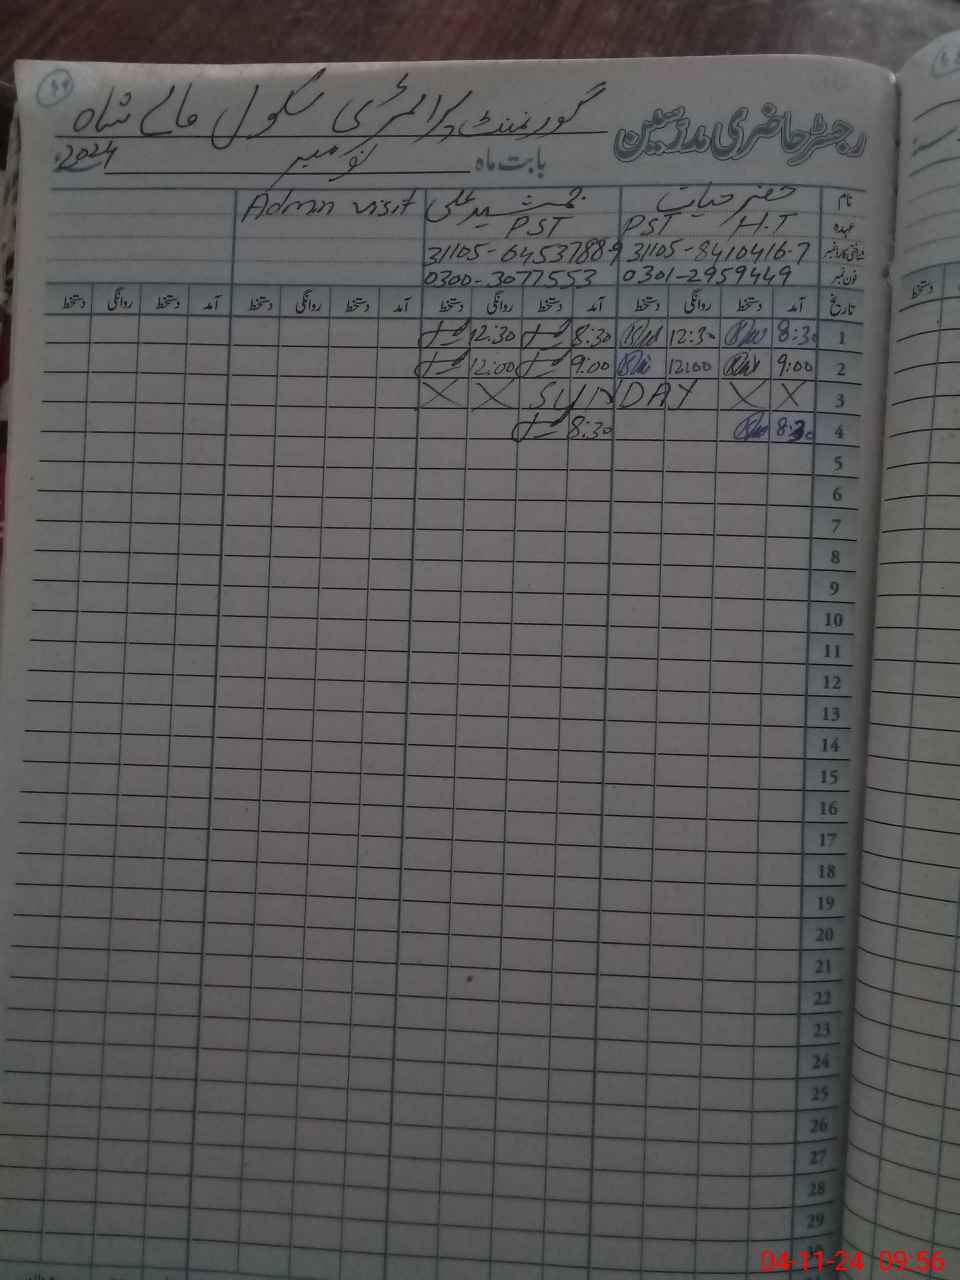 رجسٹر حاضری مدرسین گورنمنٹ پرائمری سکول مالے شاہ
بابت ماہ نومبر 2024ء
نام خضر حیات جمشید علی Admn visit
عہدہ H.T PST PST
شناختی کارڈ نمبر 31105-8410416-7 31105-6453788-9
فون نمبر 0301-2959449 0300-3077553
تاریخ آمد دستخط روانگی دستخط آمد دستخط روانگی دستخط آمد دستخط روانگی دستخط آمد دستخط روانگی دستخط
1 8:30 12:30 8:30 12:30
2 9:00 12:00 9:00 12:00
3 X X SUNDAY X X
4 8:30 8:30
5
6
7
8
9
10
11
12
13
14
15
16
17
18
19
20
21
22
23
24
25
26
27
28
29
04-11-24 09:56